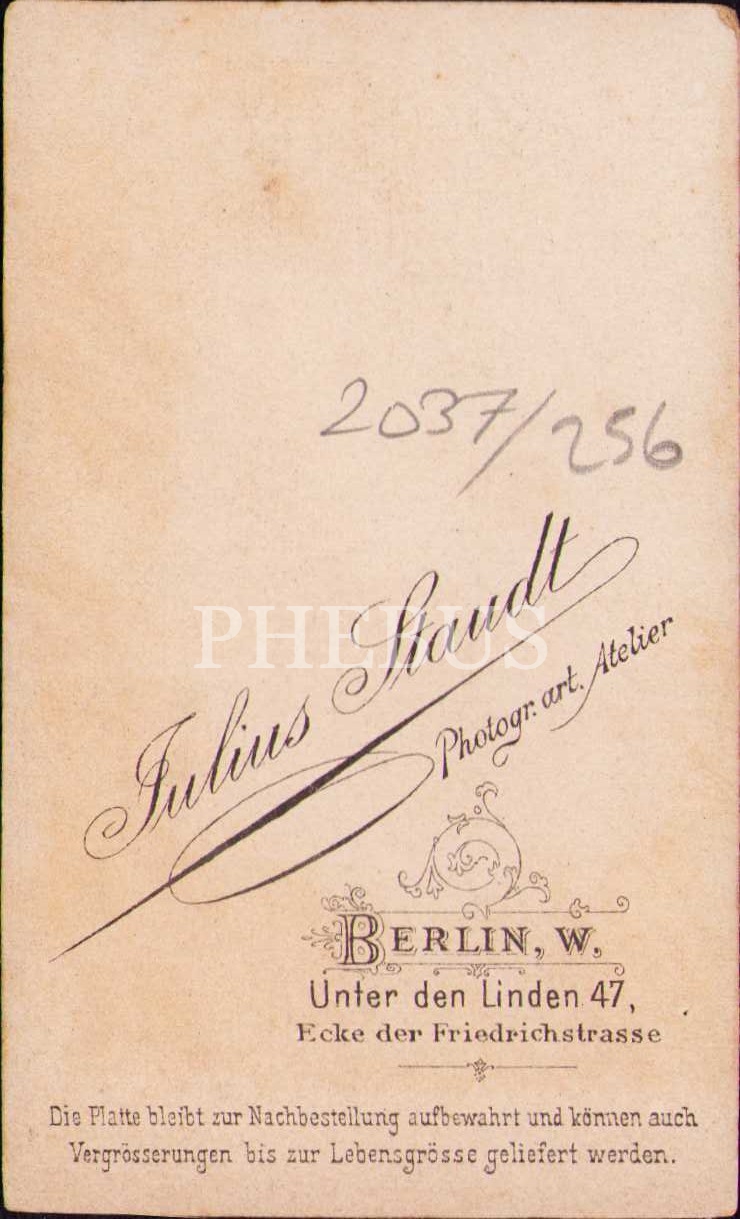 2037/256
Julius Staudt
PHEBUS
Photogr. art. Atelier
BERLIN, W.
Unter den Linden 47,
Ecke der Friedrichstrasse
Die Platte bleibt zur Nachbestellung aufbewahrt und können auch
Vergrösserungen bis zur Lebensgrösse geliefert werden.